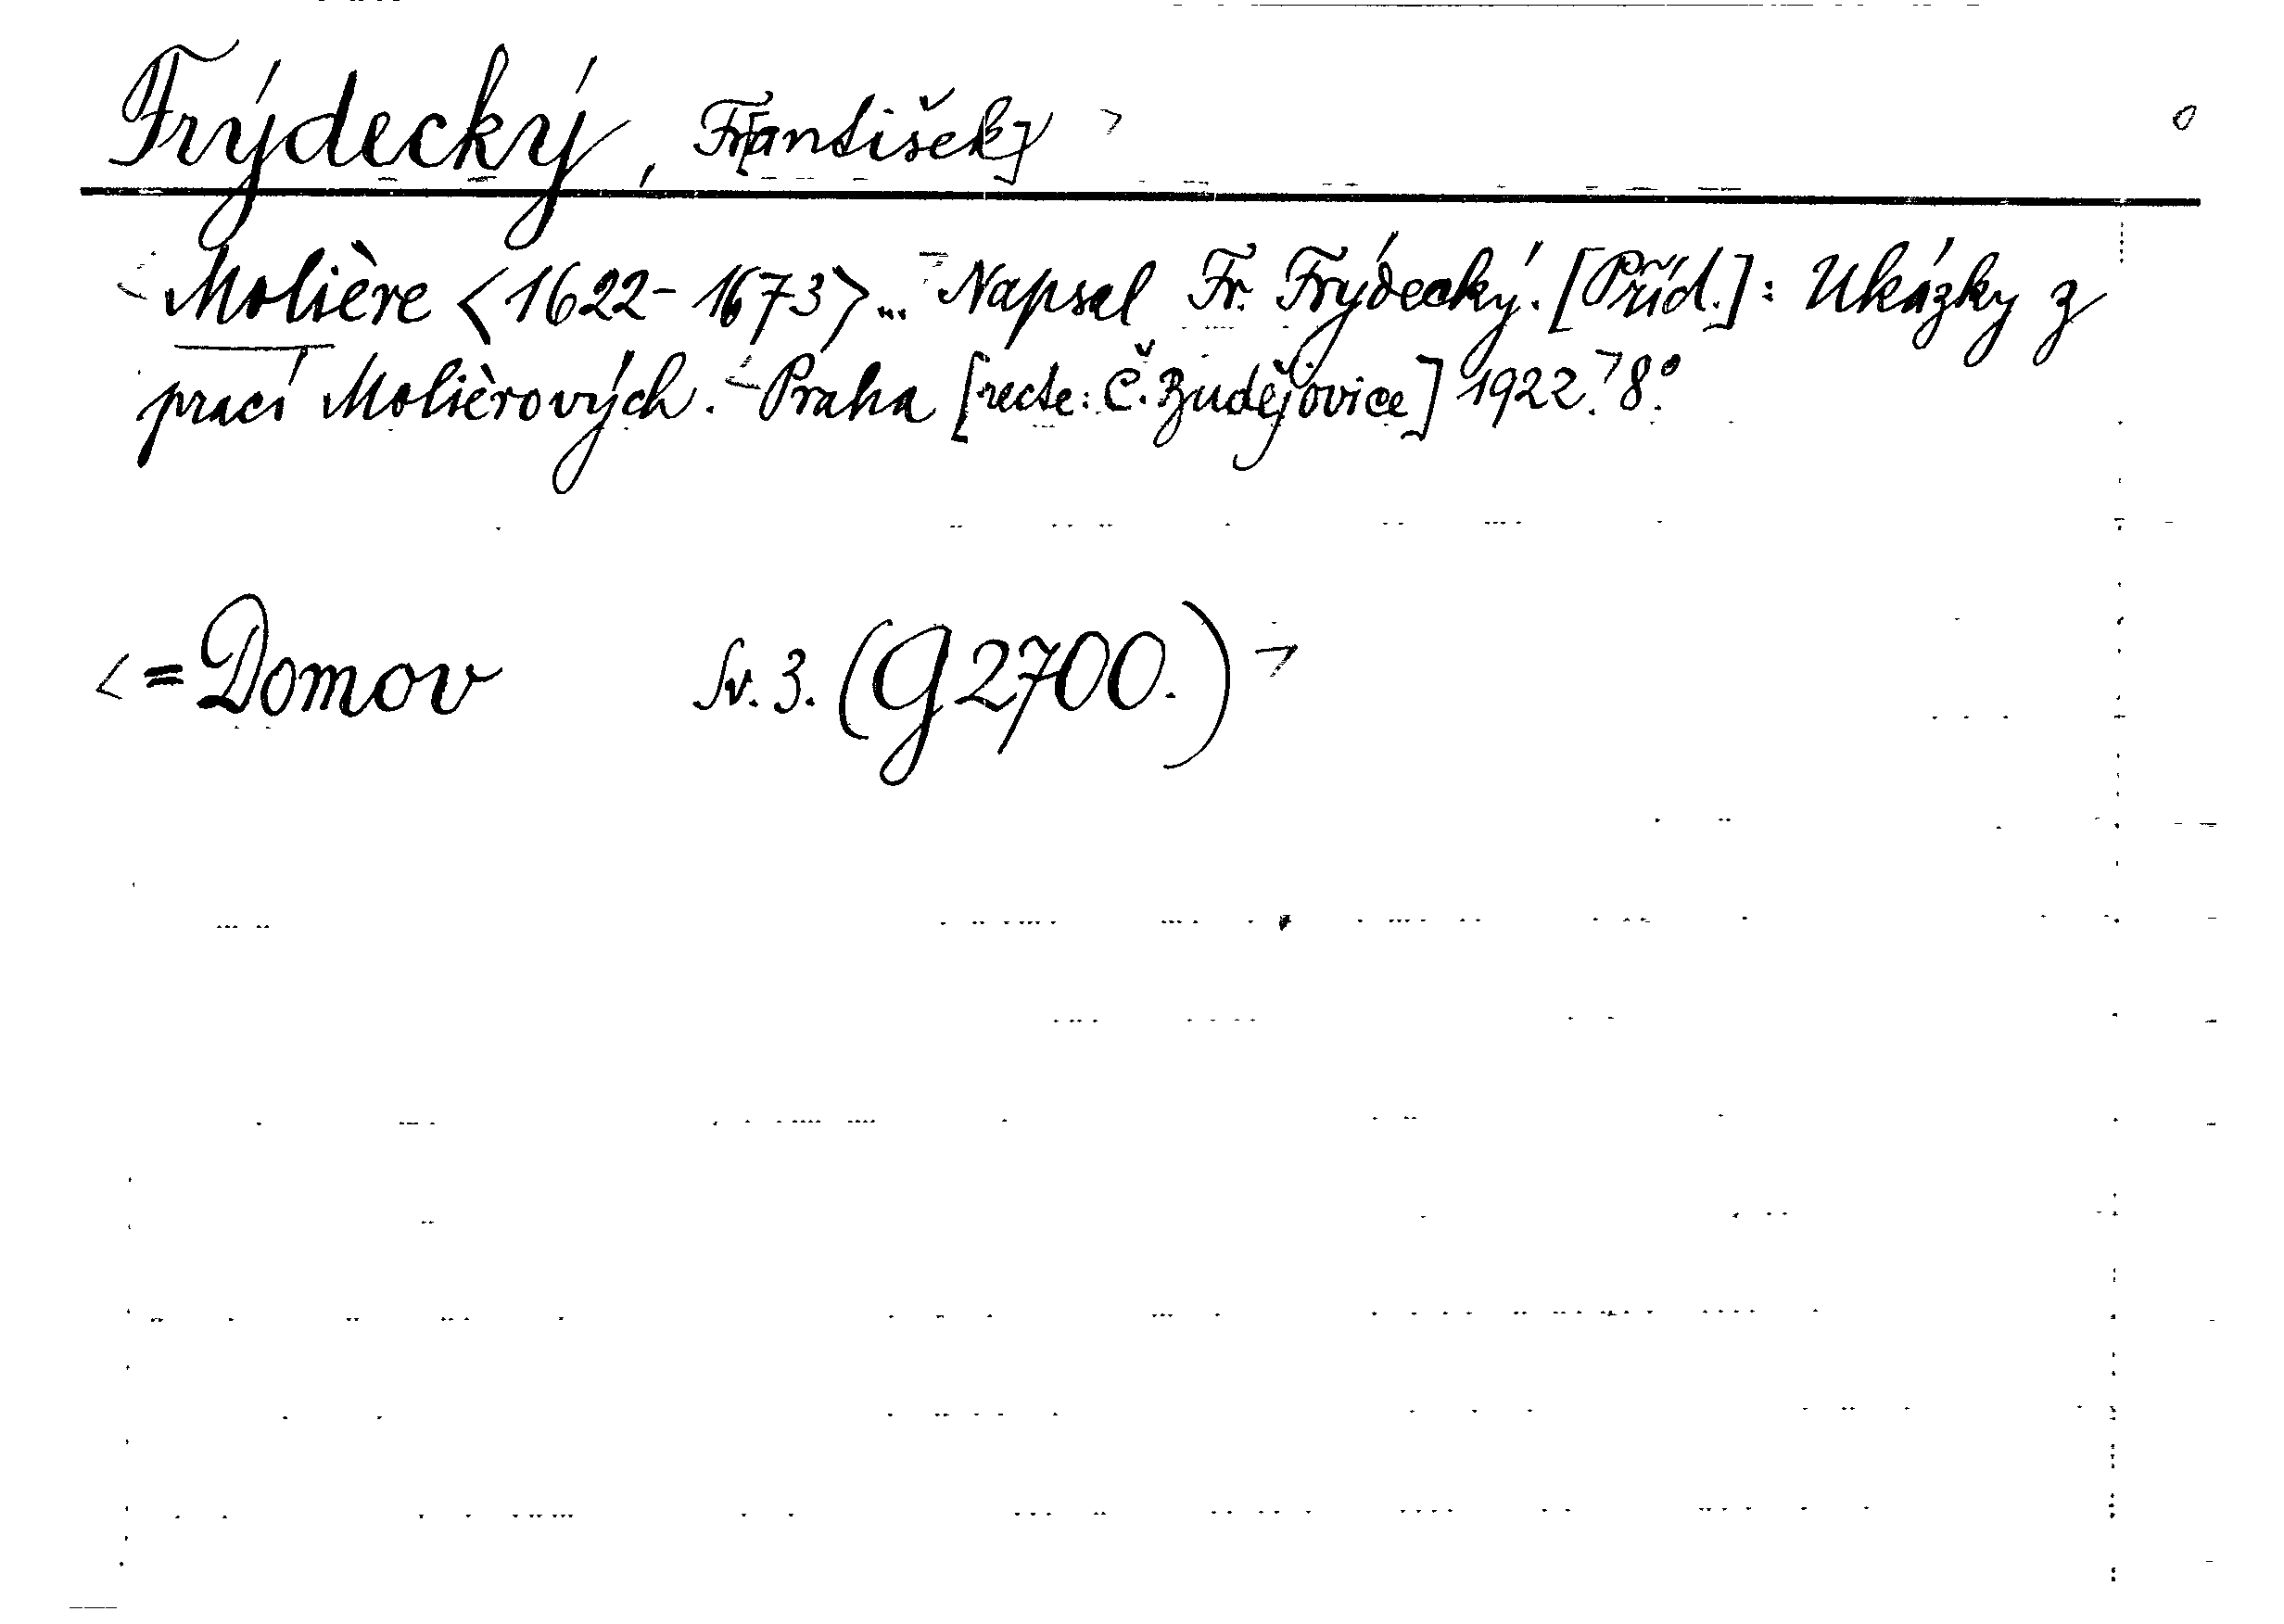 Frýdecký, Fr[antišek]
Molière <1622-1673>... Napsal Fr. Frýdecký. [Příd.]: Ukázky z
prací Molièrových. Praha [recte: Č. Budějovice] 1922. 8°.
= Domov Sv. 3. (G 2700.)